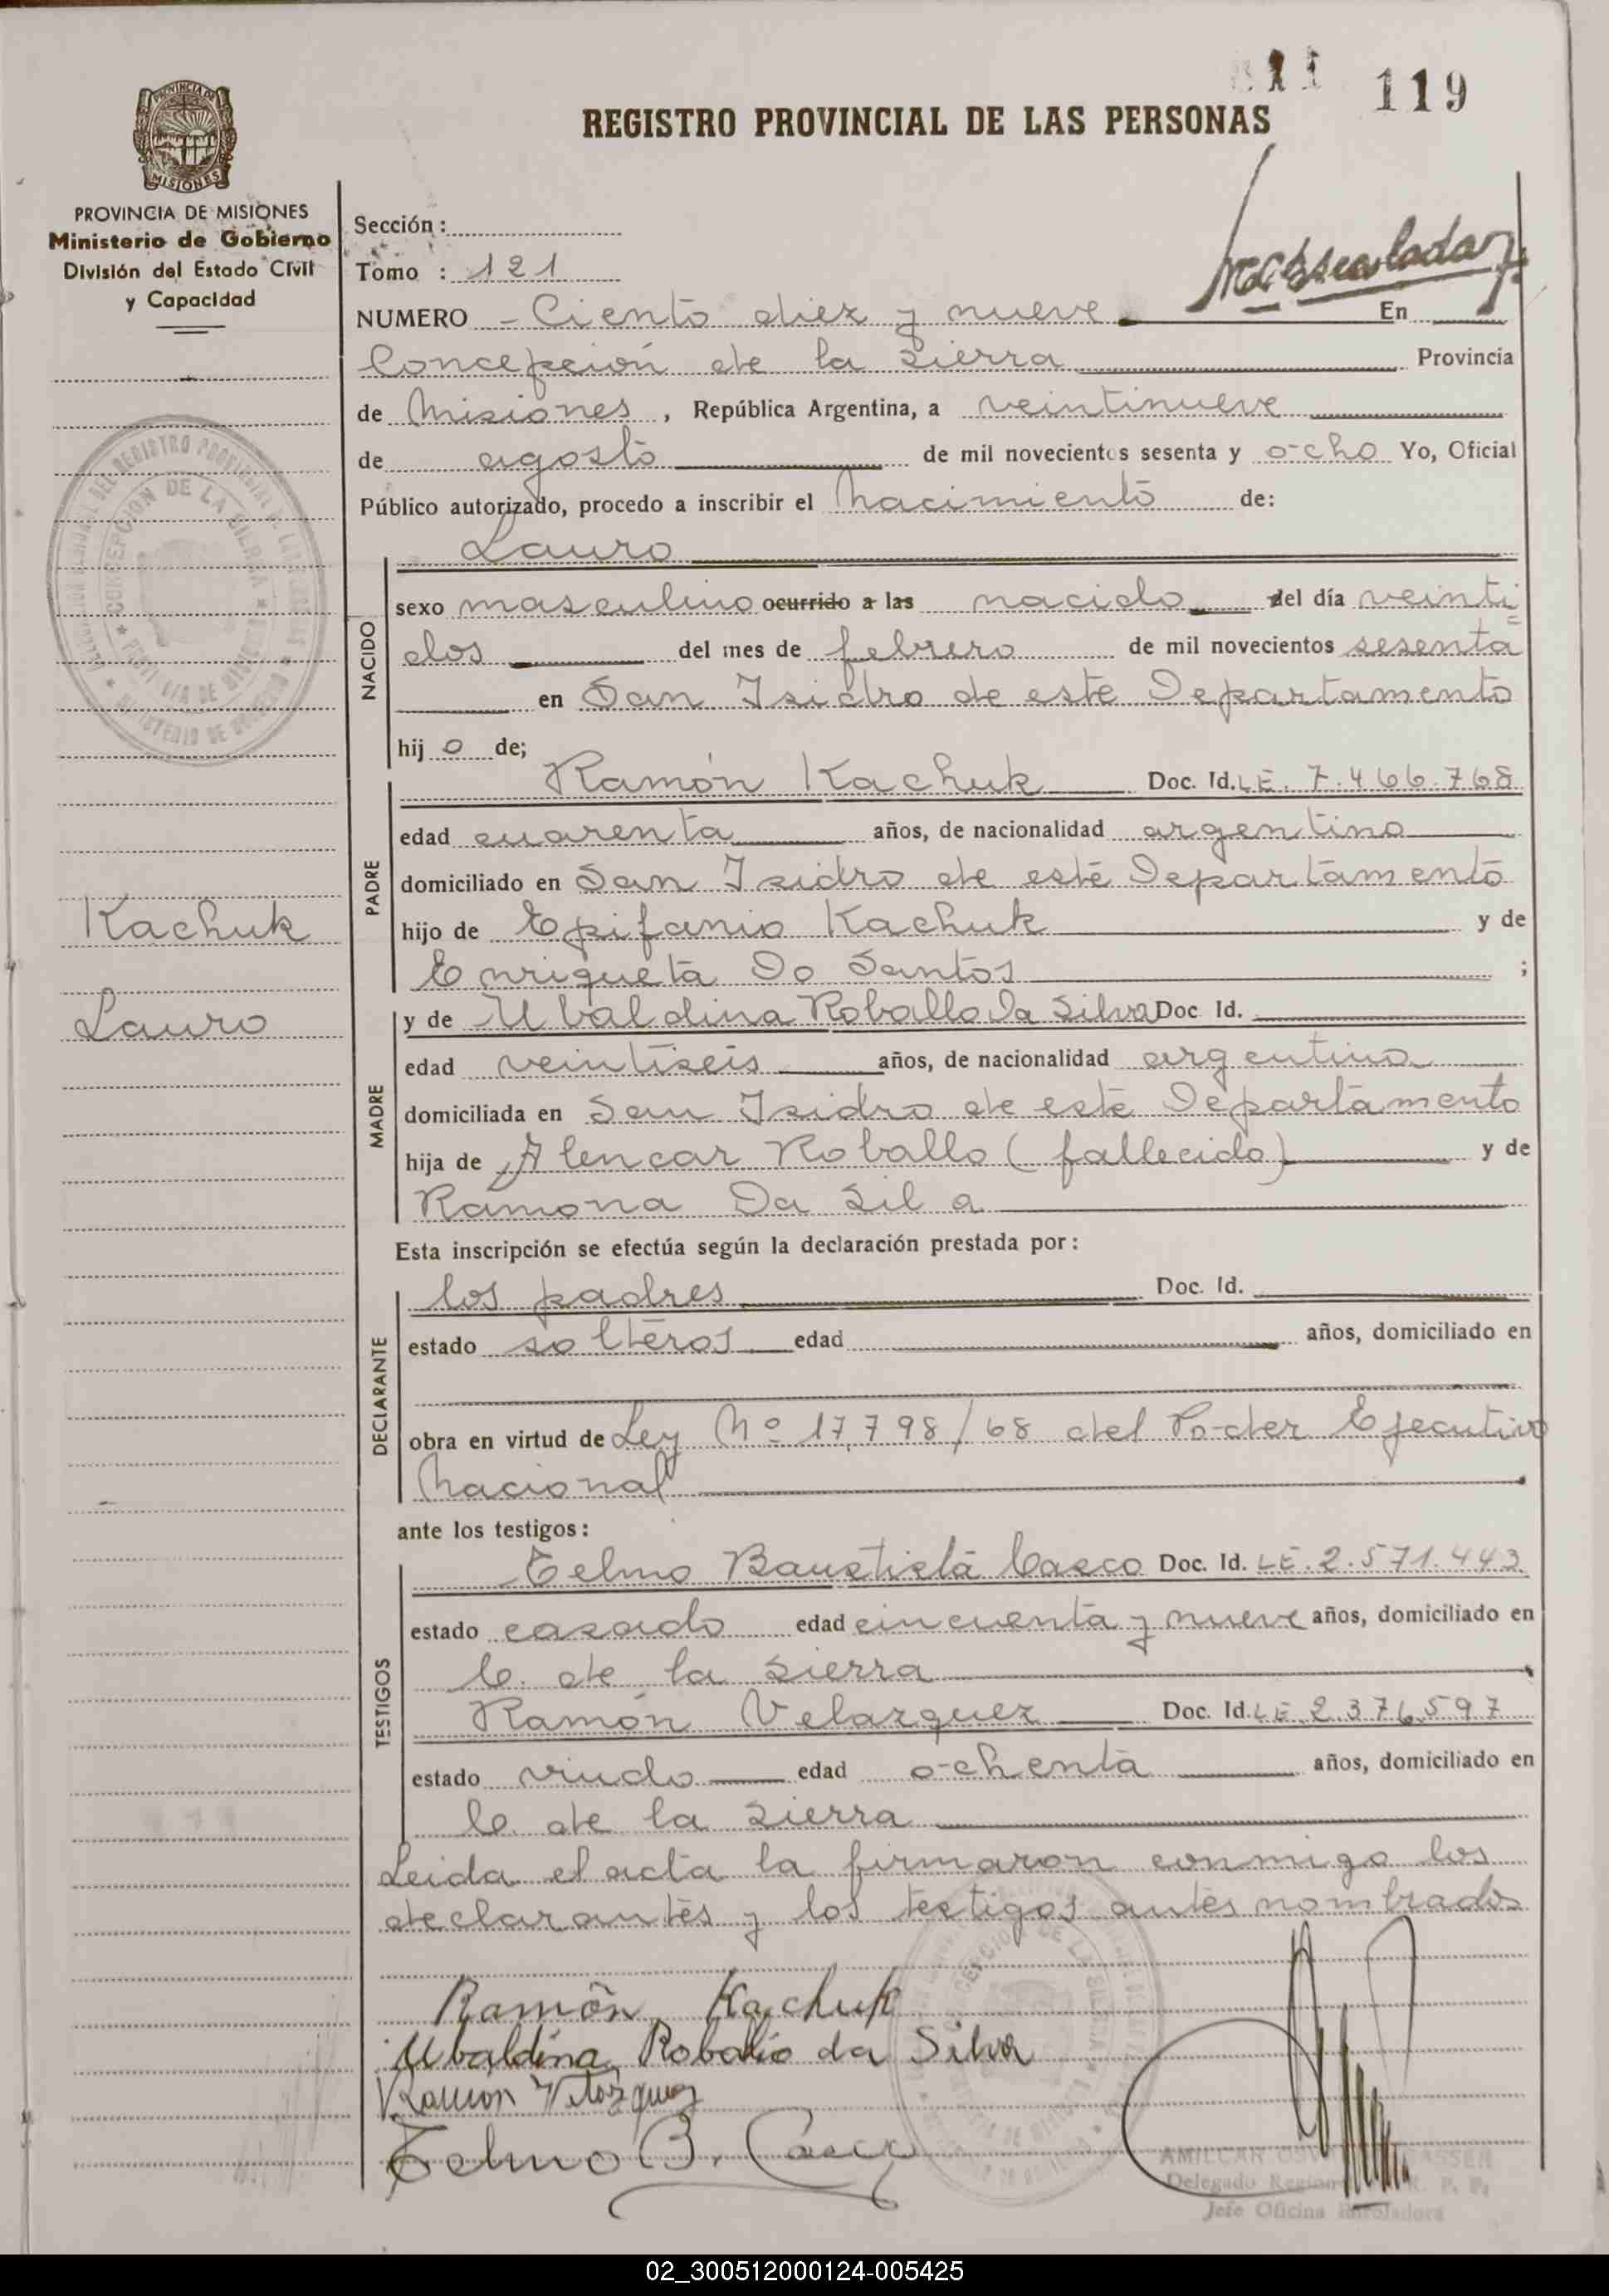 119
REGISTRO PROVINCIAL DE LAS PERSONAS
PROVINCIA DE MISIONES
Ministerio de Gobierno
División del Estado Civil
y Capacidad
Sección:
Tomo : 121
NUMERO - Ciento diez y nueve En
Concepción de la Sierra Provincia
de Misiones, República Argentina, a veintinueve
de agosto de mil novecientos sesenta y ocho Yo, Oficial
Público autorizado, procedo a inscribir el Nacimiento de:
Lauro
NACIDO
sexo masculino ocurrido a las nacido del día veinti
dos del mes de febrero de mil novecientos sesenta
en San Isidro de este Departamento
hij o de;
PADRE
Ramón Kachuk Doc. Id. LE. 7.466.768
edad cuarenta años, de nacionalidad argentino
domiciliado en San Isidro de este Departamento
hijo de Epifanio Kachuk y de
Enriqueta Do Santos ;
MADRE
y de Ubaldina Roballo Da Silva Doc Id.
edad veintiseis años, de nacionalidad argentina
domiciliada en San Isidro de este Departamento
hija de Alencar Roballo (fallecido) y de
Ramona Da Sil a
Kachuk
Lauro
Esta inscripción se efectúa según la declaración prestada por:
DECLARANTE
los padres Doc. Id.
estado solteros edad años, domiciliado en
obra en virtud de Ley Nº 17,798/68 del Poder Ejecutivo
Nacional
ante los testigos:
TESTIGOS
Telmo Bautista Casco Doc. Id. LE. 2.571.443
estado casado edad cincuenta y nueve años, domiciliado en
C. de la Sierra
Ramón Velazquez Doc. Id. LE. 2.376.597
estado viudo edad ochenta años, domiciliado en
C. de la Sierra
Leida el acta la firmaron conmigo los
declarantes y los testigos antes nombrados
Ramón Kachuk
Ubaldina Roballo da Silva
Ramón Velázquez
Telmo B. Casco
AMILCAR
Delegado Region R. P. P.
Jefe Oficina Enroladora
02_300512000124-005425